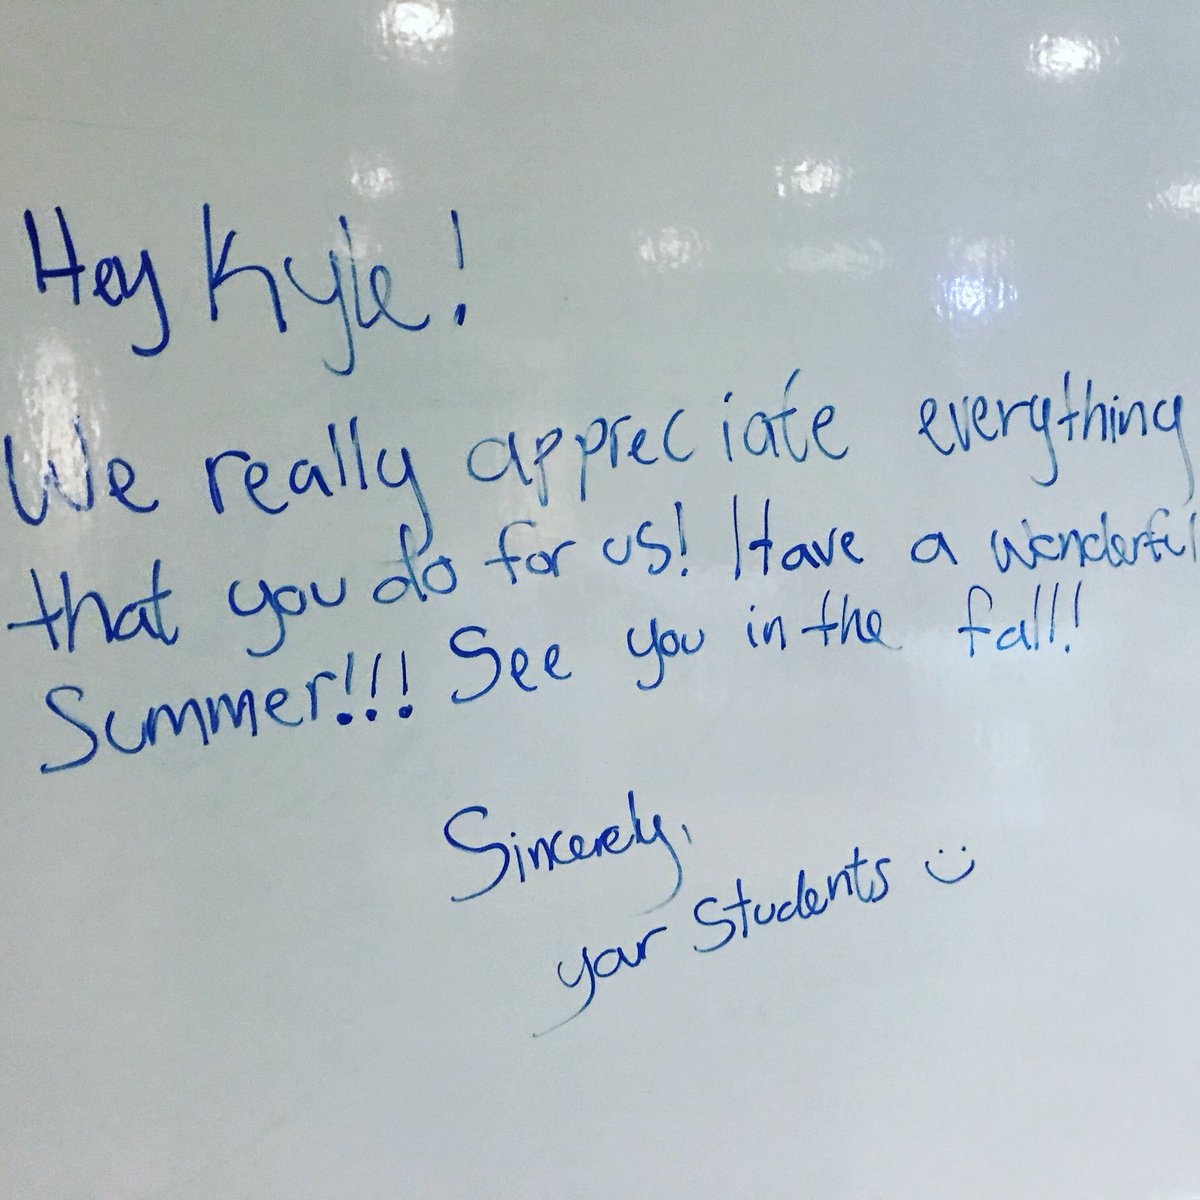 Hey Kyle!
We really appreciate everything
that you do for us! Have a wonderful
Summer!!! See you in the fall!
Sincerely,
your Students :)